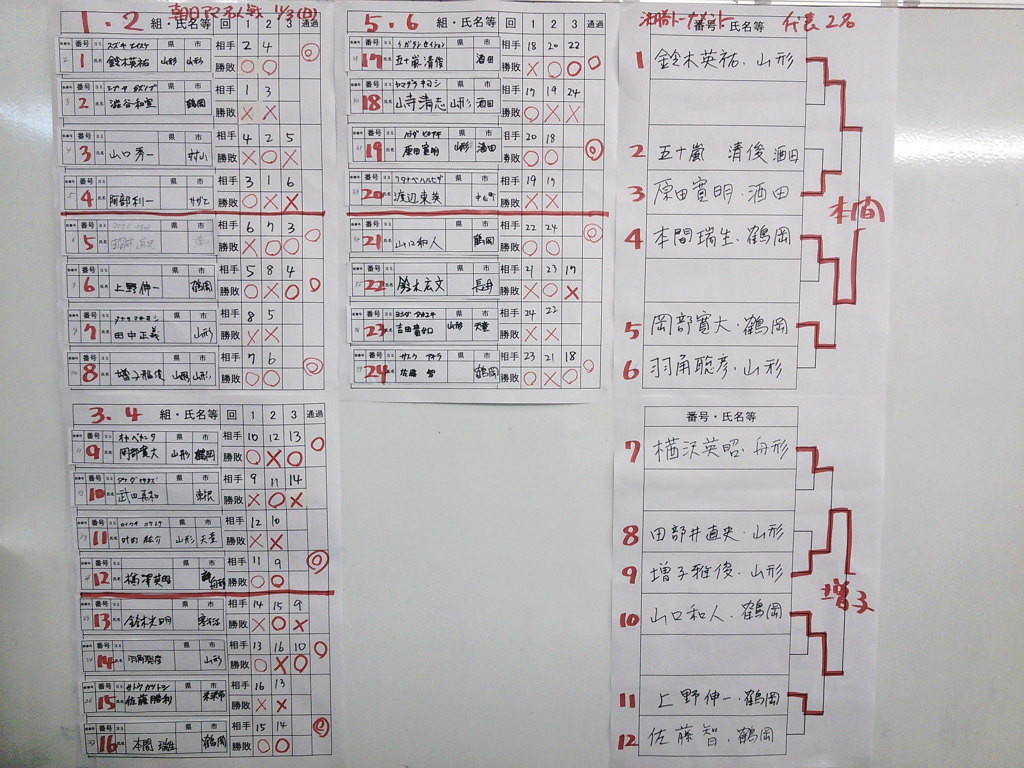 朝日アマ名人戦 11/3(日)
1.2 組・氏名等 回 1 2 3 通過
番号 県 市 相手 2 4
1 鈴木英祐 山形 山形 勝敗 ○ ○ ◎
番号 県 市 相手 1 3
2 澁谷和宣 鶴岡 勝敗 × ×
番号 県 市 相手 4 2 5
3 山口秀一 勝敗 × ○ ×
番号 県 市 相手 3 1 6
4 阿部利一 勝敗 ○ × ×
番号 県 市 相手 6 7 3
5 勝敗 × ○ ○ ○
番号 県 市 相手 5 8 4
6 上野伸一 鶴岡 勝敗 ○ × ○ ○
番号 県 市 相手 8 5
7 田中正義 山形 勝敗 × ×
番号 県 市 相手 7 6
8 増子雅俊 山形 山形 勝敗 ○ ○ ◎
3.4 組・氏名等 回 1 2 3 通過
番号 県 市 相手 10 12 13
9 岡部寛大 山形 鶴岡 勝敗 ○ × ○ ○
番号 県 市 相手 9 11 14
10 武田 米沢 勝敗 × ○ ×
番号 県 市 相手 12 10
11 山形 天童 勝敗 × ×
番号 県 市 相手 11 9
12 楢沢英昭 舟形 勝敗 ○ ○ ◎
番号 県 市 相手 14 15 9
13 鈴木光明 勝敗 × ○ ×
番号 県 市 相手 13 16 10
14 羽角聡彦 山形 勝敗 ○ × ○ ○
番号 県 市 相手 16 13
15 サトウカツトシ 佐藤勝利 勝敗 × ×
番号 県 市 相手 15 14
16 本間瑞生 鶴岡 勝敗 ○ ○ ◎
5.6 組・氏名等 回 1 2 3 通過
番号 県 市 相手 18 20 22
17 五十嵐清俊 酒田 勝敗 × ○ ○ ○
番号 県 市 相手 17 19 24
18 山寺清志 山形 酒田 勝敗 ○ × ×
番号 県 市 相手 20 18
19 原田寛明 山形 酒田 勝敗 ○ ○ ◎
番号 県 市 相手 19 17
20 ワタナベハルヒデ 渡辺東英 勝敗 × ×
番号 県 市 相手 22 24
21 山口和人 鶴岡 勝敗 ○ ○ ◎
番号 県 市 相手 21 23 17
22 鈴木宏文 長井 勝敗 × ○ ×
番号 県 市 相手 24 22
23 吉田 山形 天童 勝敗 × ×
番号 県 市 相手 23 21 18
24 サトウ アキラ 佐藤智 鶴岡 勝敗 ○ × ○ ○
決勝トーナメント 代表2名
番号・氏名等
1 鈴木英祐・山形
2 五十嵐 清俊 酒田
3 原田寛明・酒田
本間
4 本間瑞生・鶴岡
5 岡部寛大・鶴岡
6 羽角聡彦・山形
番号・氏名等
7 楢沢英昭・舟形
8 田部井直央・山形
9 増子雅俊・山形
増子
10 山口和人・鶴岡
11 上野伸一・鶴岡
12 佐藤智・鶴岡